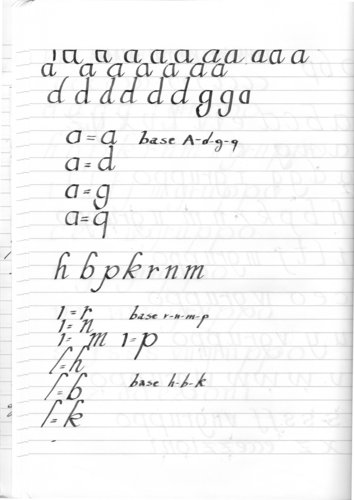 a a a a a a a a a a
a a a a a a a
d d d d d d d g g a
a = a base A-d-g-q
a = d
a = g
a = q
h b p k r n m
1 = r base r-n-m-p
1 = n
1 = m 1 = p
l = h
l = b base h-b-k
l = k